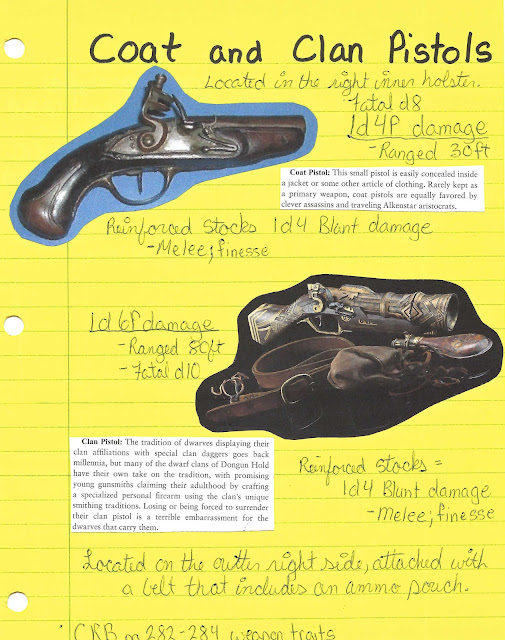 Coat and Clan Pistols
Located in the right inner holster.
Fatal d8
1d4P damage
- Ranged 30ft
Coat Pistol: This small pistol is easily concealed inside
a jacket or some other article of clothing. Rarely kept as
a primary weapon, coat pistols are equally favored by
clever assassins and traveling Alkenstar aristocrats.
Reinforced Stocks 1d4 Blunt damage
- Melee, finesse
1d6P damage
- Ranged 80ft
- Fatal d10
Clan Pistol: The tradition of dwarves displaying their
clan affiliations with special clan daggers goes back
millennia, but many of the dwarf clans of Dongun Hold
have their own take on the tradition, with promising
young gunsmiths claiming their adulthood by crafting
a specialized personal firearm using the clan's unique
smithing traditions. Losing or being forced to surrender
their clan pistol is a terrible embarrassment for the
dwarves that carry them.
Reinforced Stocks =
1d4 Blunt damage
- Melee, finesse
Located on the outter right side, attached with
a belt that includes an ammo pouch.
CRB pg 282-284 weapon traits